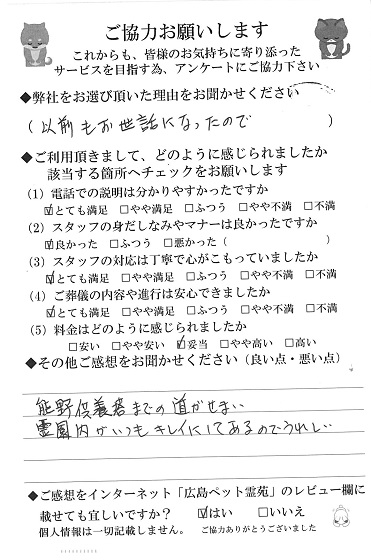 ご協力お願いします
これからも、皆様のお気持ちに寄り添った
サービスを目指す為、アンケートにご協力下さい
◆弊社をお選び頂いた理由をお聞かせください
(以前もお世話になったので)
◆ご利用頂きまして、どのように感じられましたか
該当する箇所へチェックをお願いします
(1)電話での説明は分かりやすかったですか
☑とても満足 □やや満足 □ふつう □やや不満 □不満
(2)スタッフの身だしなみやマナーは良かったですか
☑良かった □ふつう □悪かった( )
(3)スタッフの対応は丁寧で心がこもっていましたか
☑とても満足 □やや満足 □ふつう □やや不満 □不満
(4)ご葬儀の内容や進行は安心できましたか
☑とても満足 □やや満足 □ふつう □やや不満 □不満
(5)料金はどのように感じられましたか
□安い □やや安い ☑妥当 □やや高い □高い
◆その他ご感想をお聞かせください(良い点・悪い点)
熊野供養塔までの道がせまい
霊園内がいつもキレイにしてあるのでうれしい
◆ご感想をインターネット「広島ペット霊苑」のレビュー欄に
載せても宜しいですか? ☑はい □いいえ
個人情報は一切記載しません。 ご協力ありがとうございました